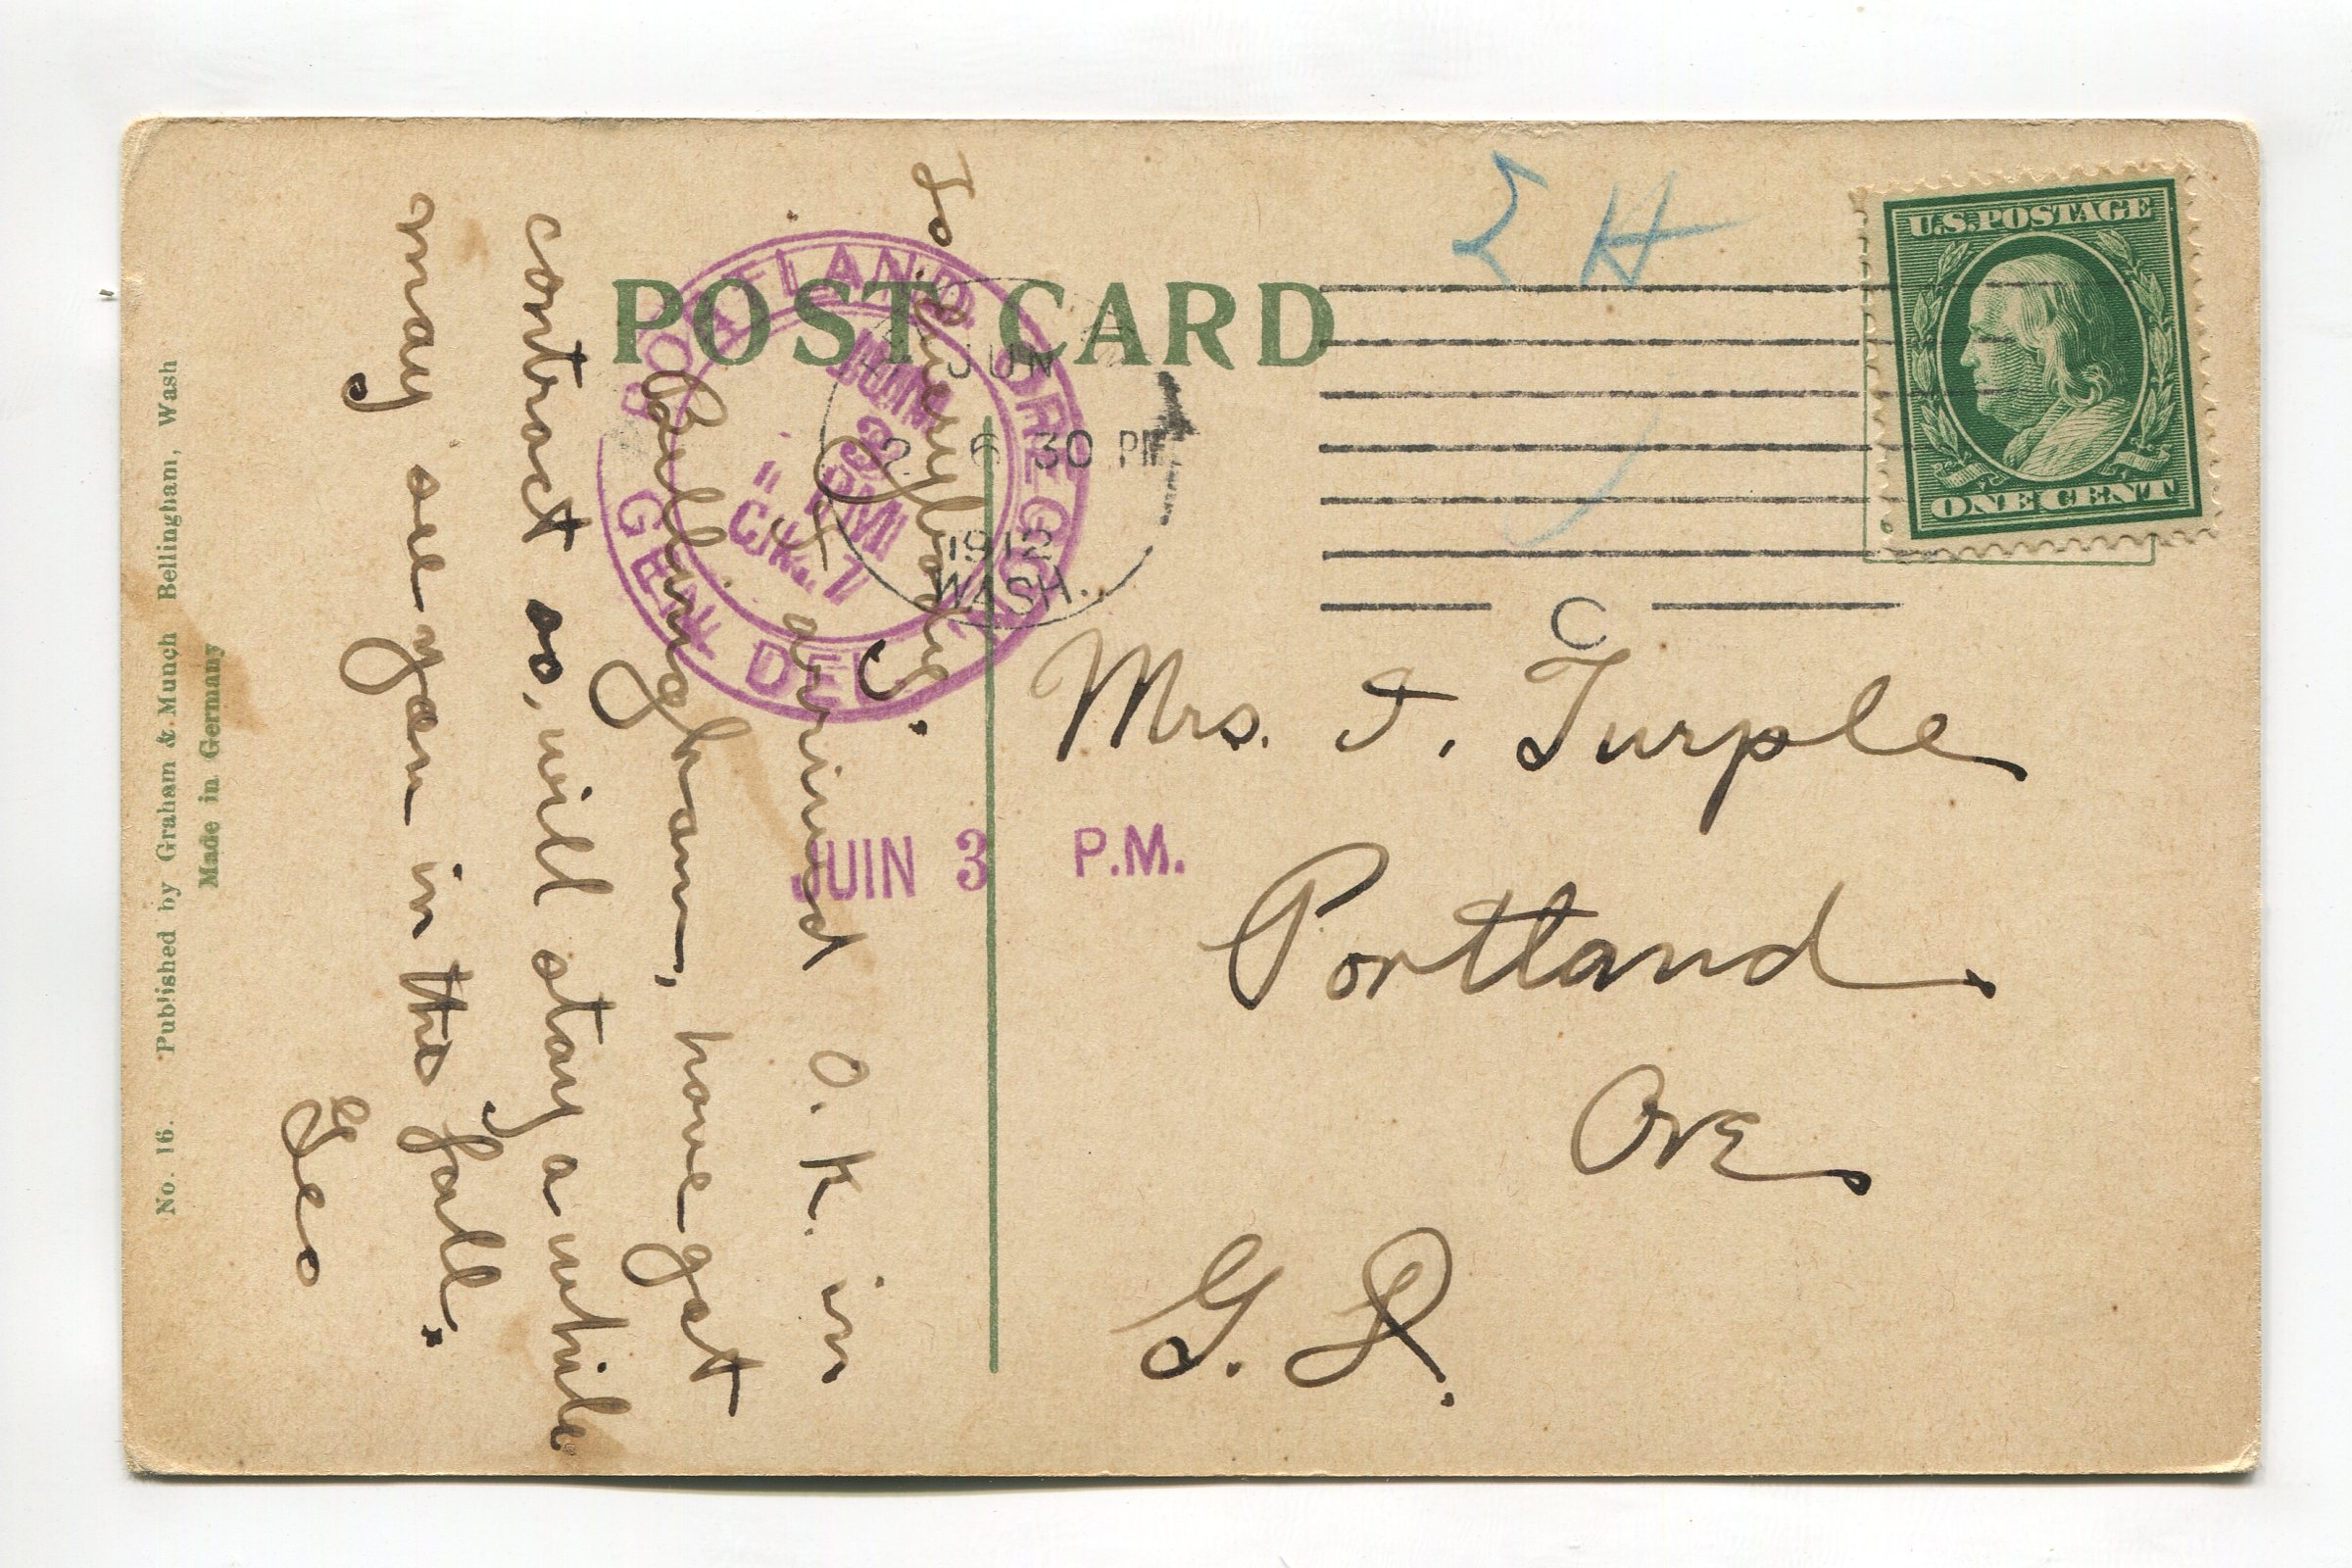 POST CARD
U.S. POSTAGE
ONE CENT
JUN
2 6 30 PM
1912
WASH.
C
PORTLAND, OREGON
JUN
3
PM
GEN. DEL.
JUN 3 P.M.
Mrs. I. Turple
Portland
Ore
G. D.
To Everybody.
I arrived O. K. in
Bellingham, have got
contract so, will stay a while
may see you in the fall.
Geo
No. 16. Published by Graham & Munch Bellingham, Wash
Made in Germany